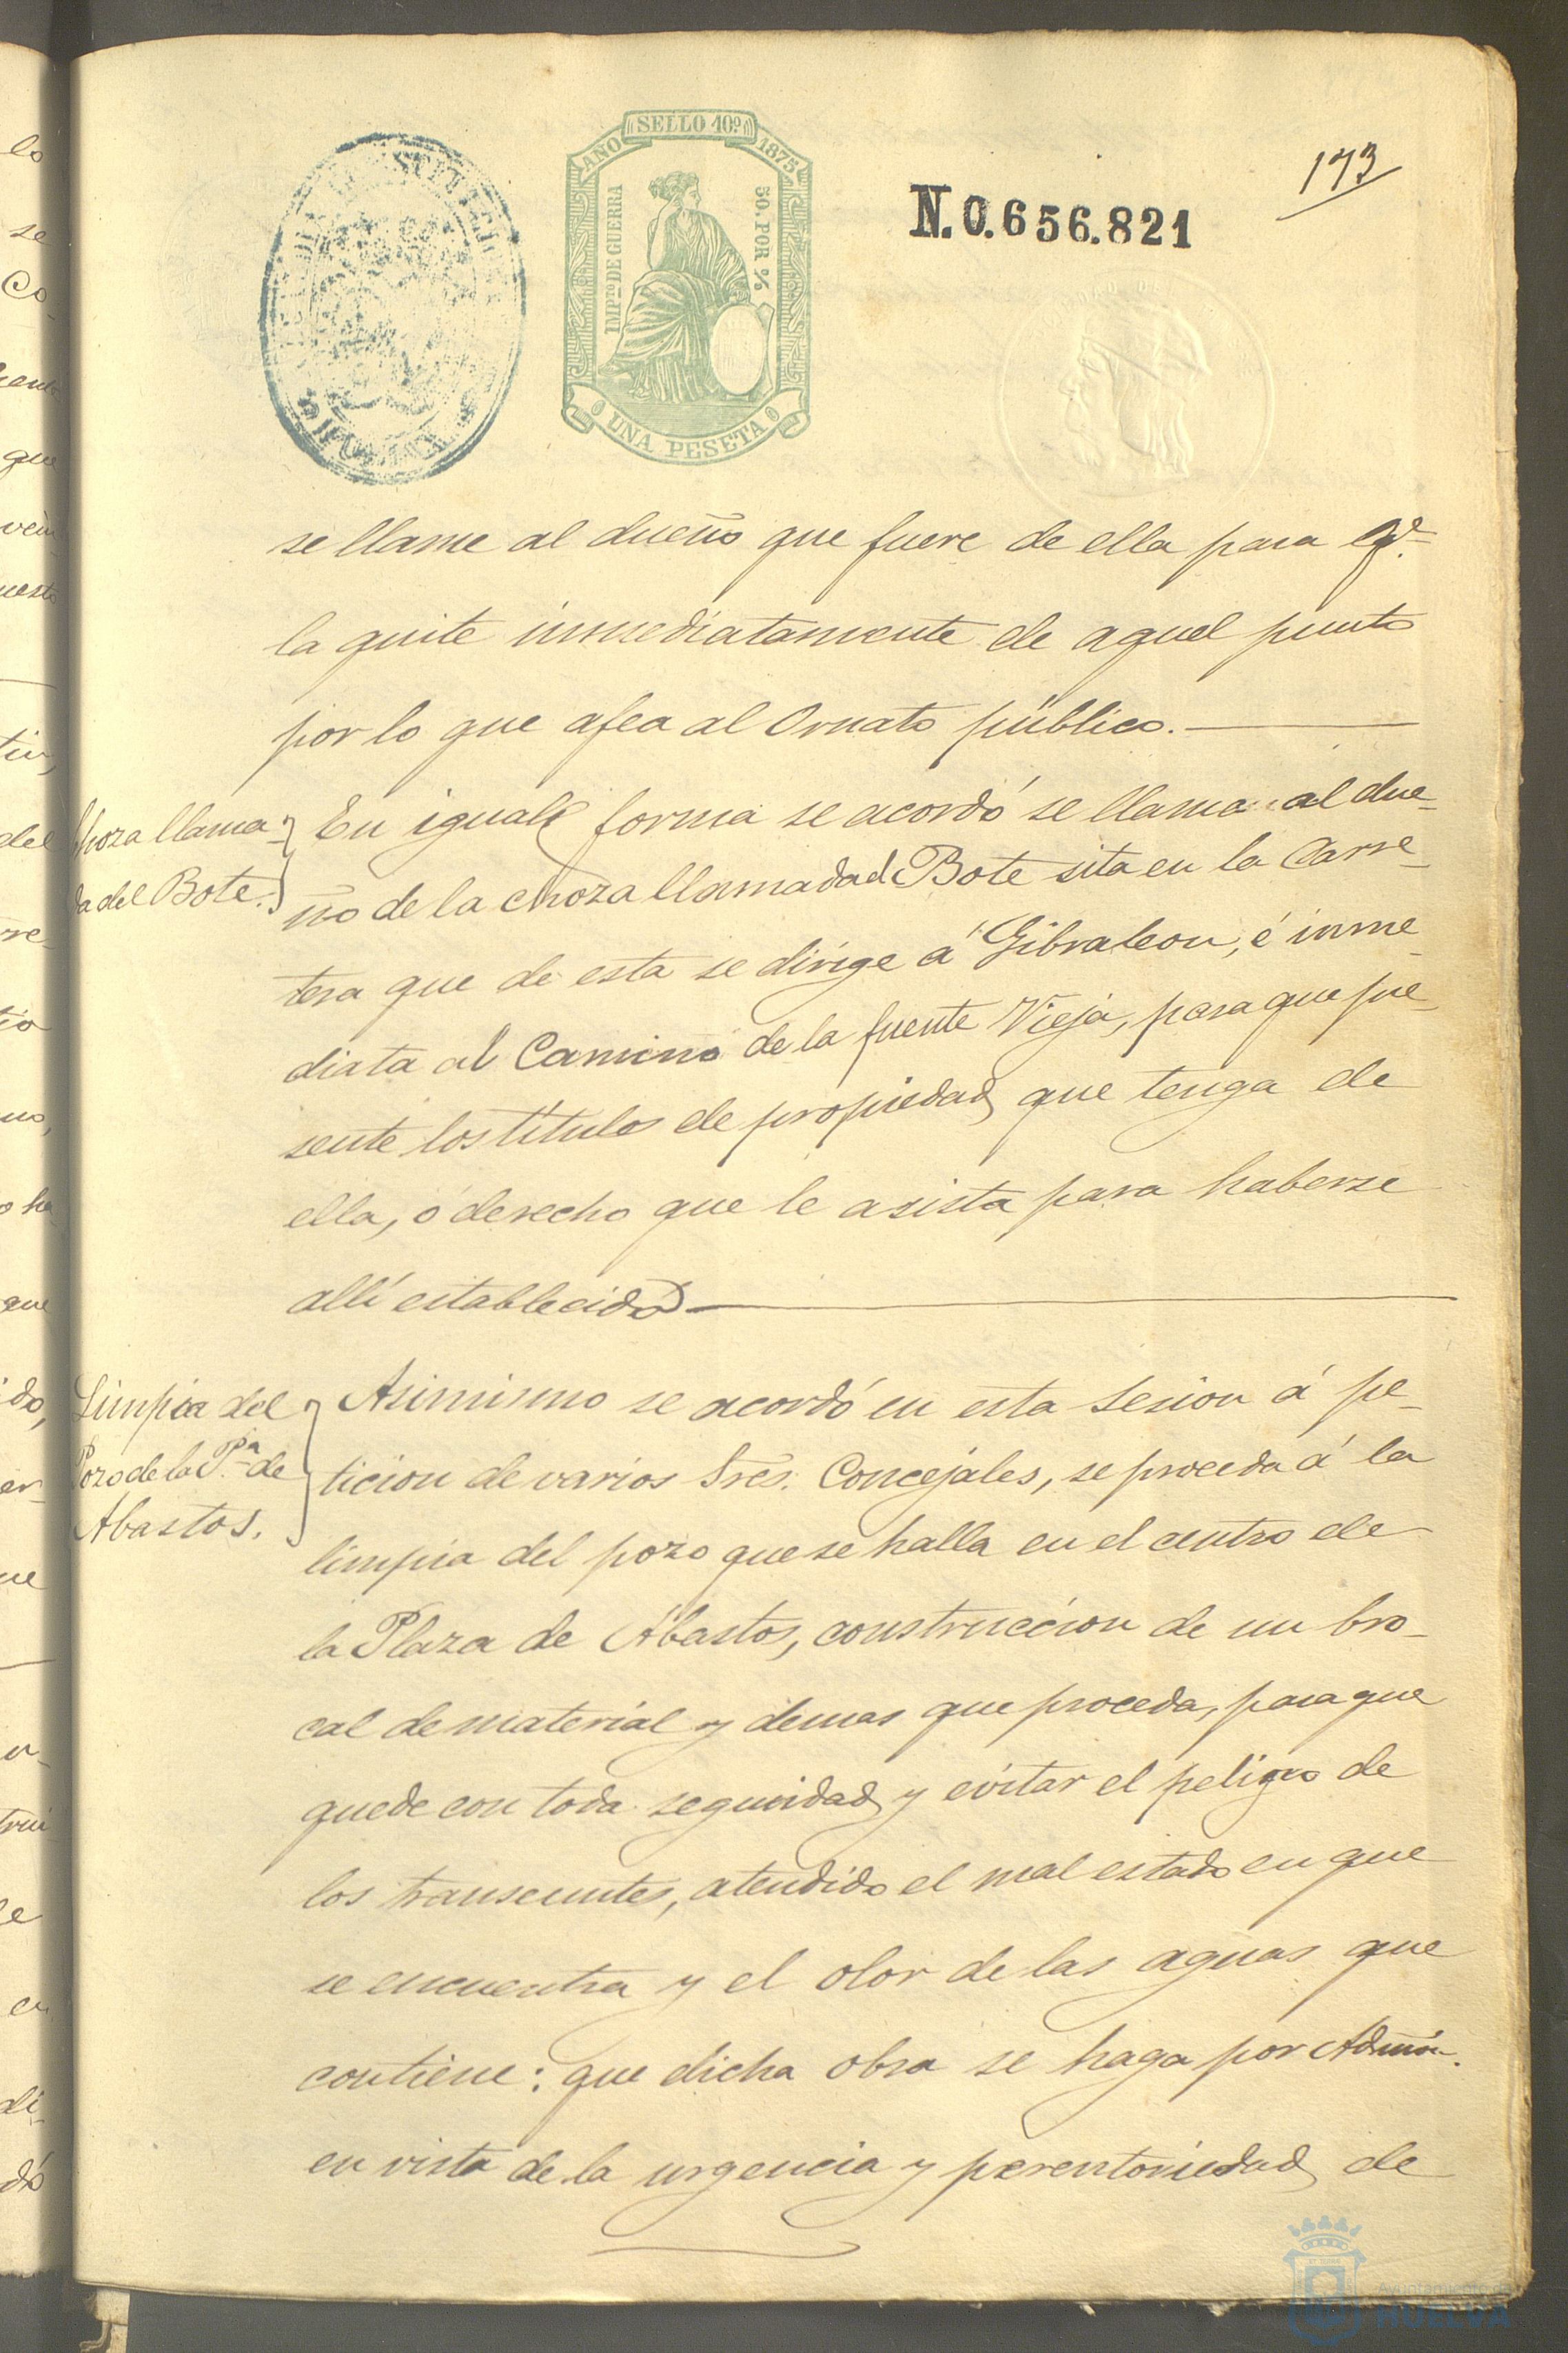 SELLO 10º
AÑO 1875
IMPTO DE GUERRA
50. POR %
UNA PESETA
N.0.656.821
173
se llame al dueño que fuere de ella para qe.
la quite inmediatamente de aquel punto
por lo que afea al Ornato público.
Choza llama-
da del Bote.
En igual forma se acordó se llama al due-
ño de la choza llamada del Bote sita en la Carre-
tera que de esta se dirige á Gibraleon, é inme-
diata al Camino de la fuente Vieja, para que pre-
sente los titulos de propiedad que tenga de
ella, ó derecho que le asista para haberse
allí establecido
Limpia del
Pozo de la Pª. de
Abastos.
Asimismo se acordó en esta Sesion á pe-
ticion de varios Sres. Concejales, se proceda á la
limpia del pozo que se halla en el centro de
la Plaza de Abastos, construccion de un bro-
cal de material y demas que proceda, para que
quede con toda seguridad y evitar el peligro de
los transeuntes, atendido el mal estado en que
se encuentra y el olor de las aguas que
contiene: que dicha obra se haga por Admón.
en vista de la urgencia y perentoriedad de
Ayuntamiento de
HUELVA